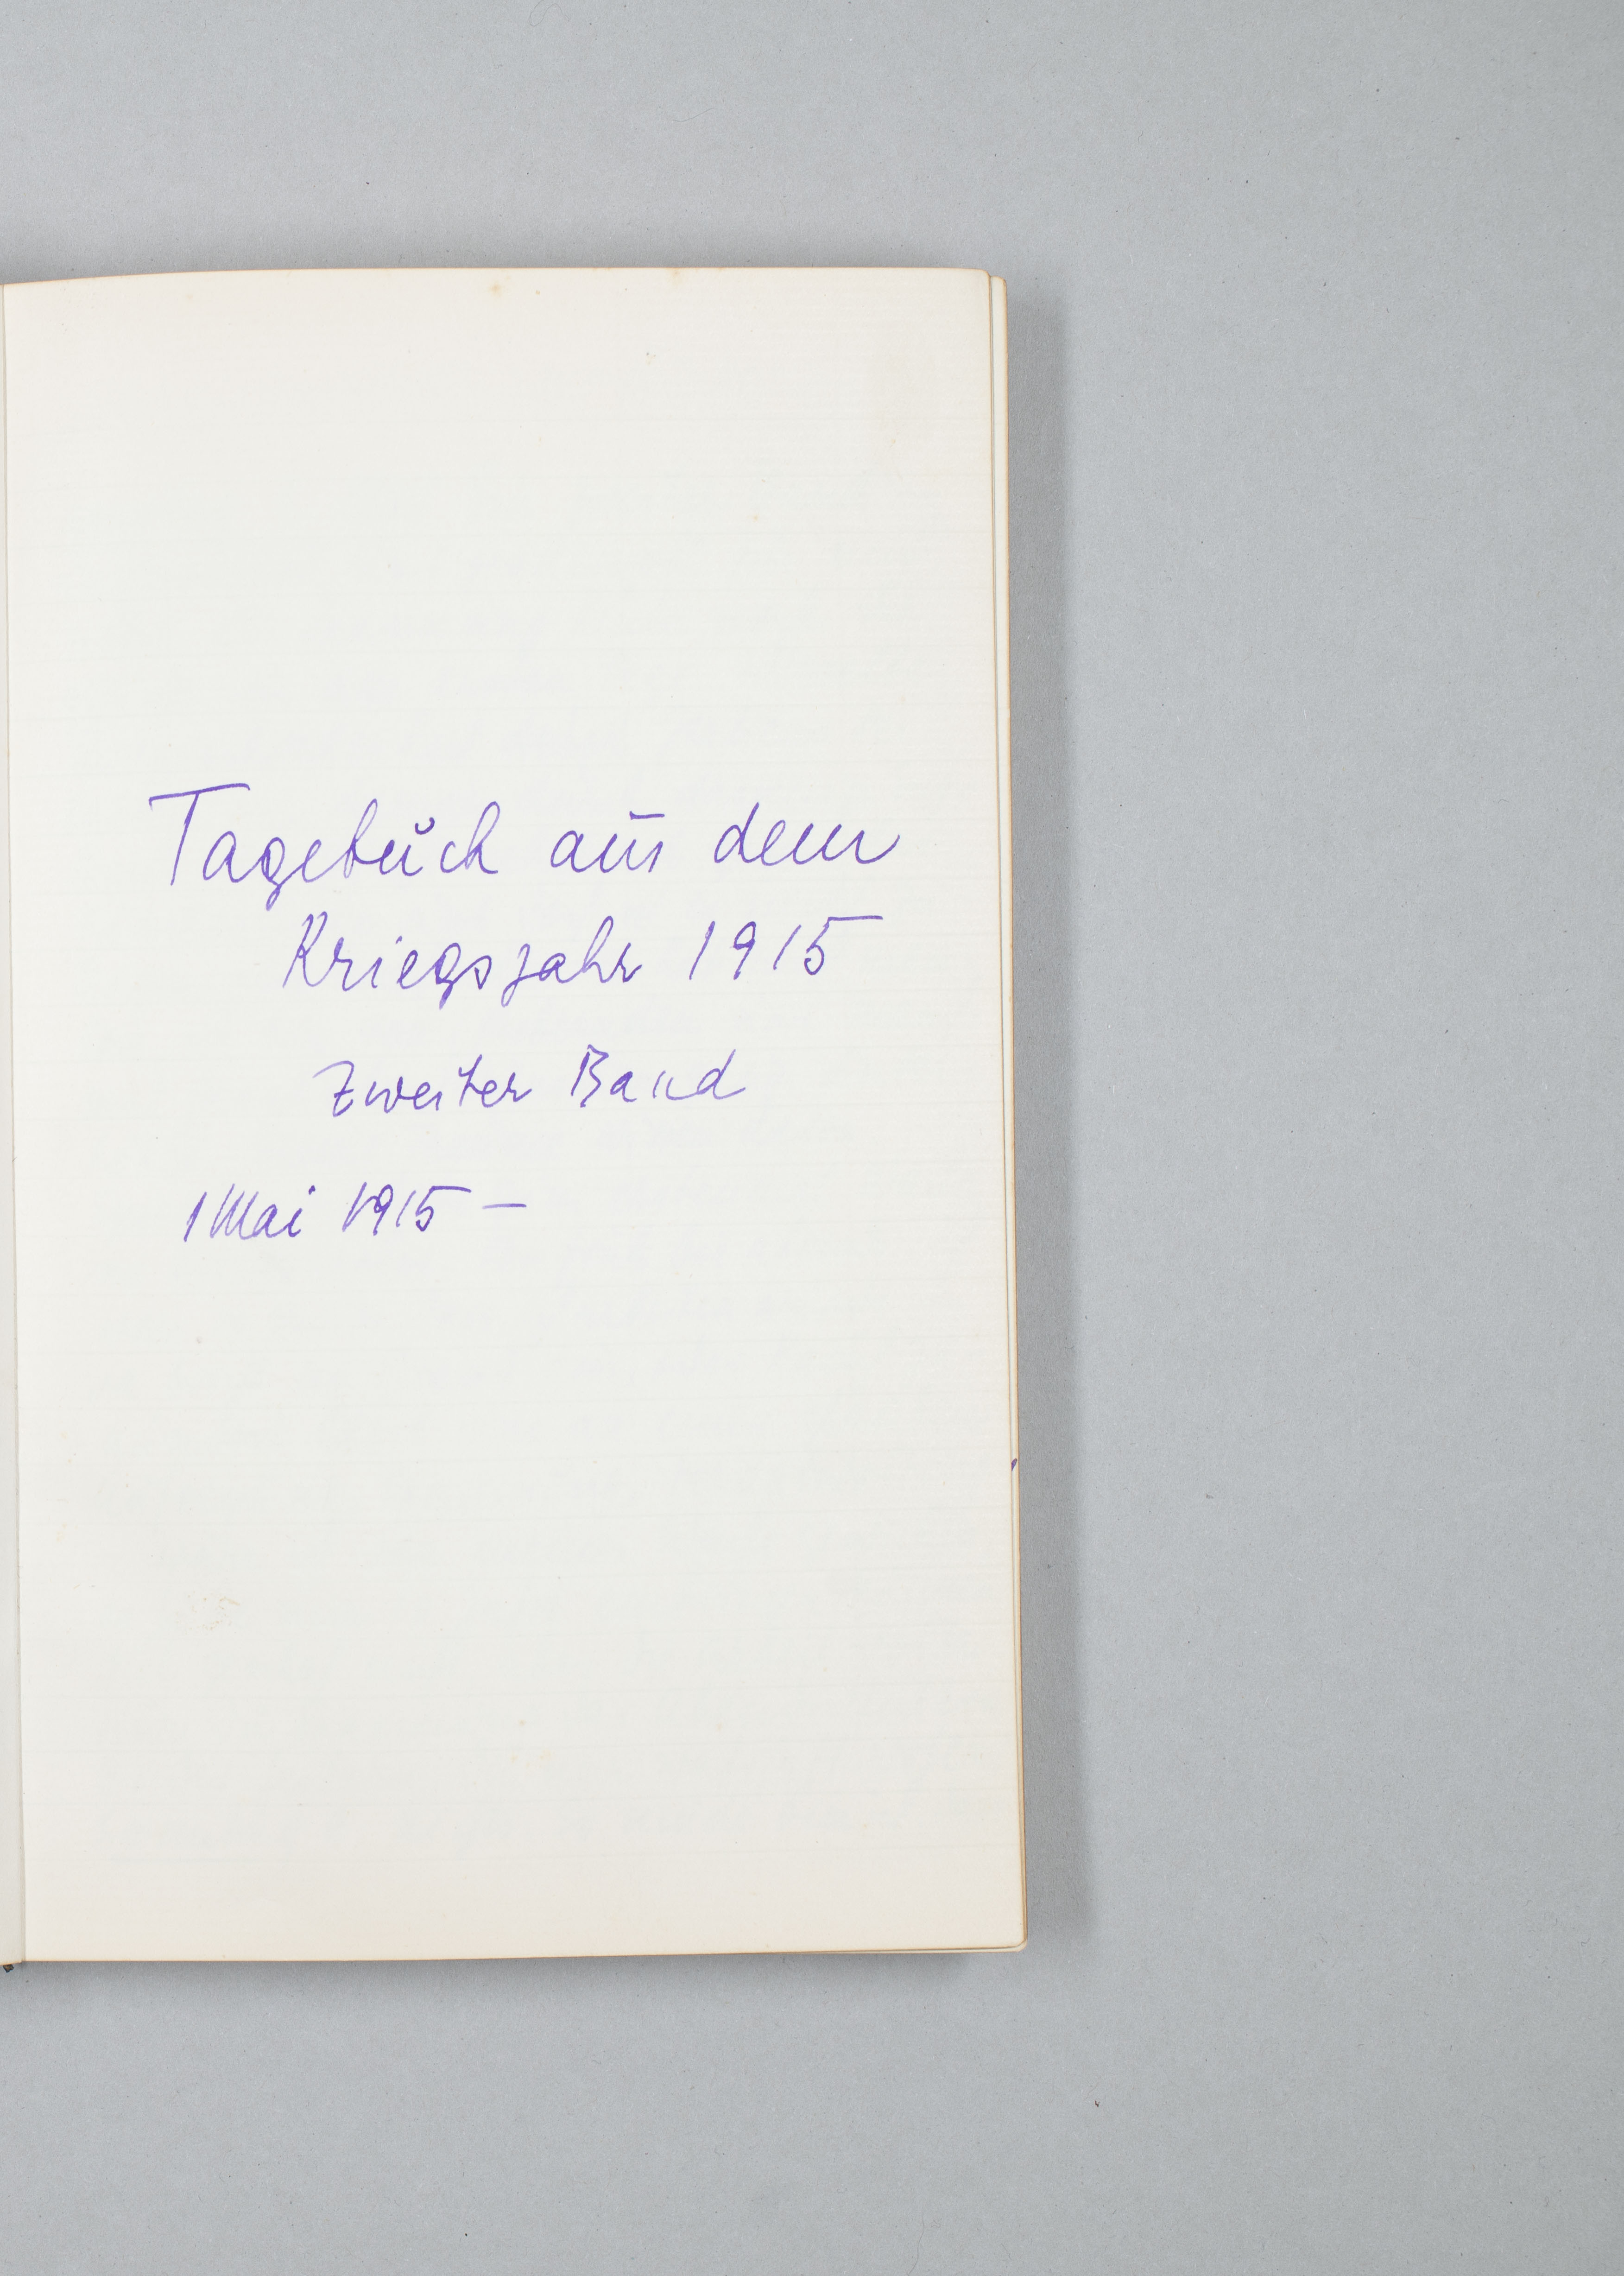 Tagebuch aus dem
Kriegsjahr 1915
Zweiter Band
1 Mai 1915 –